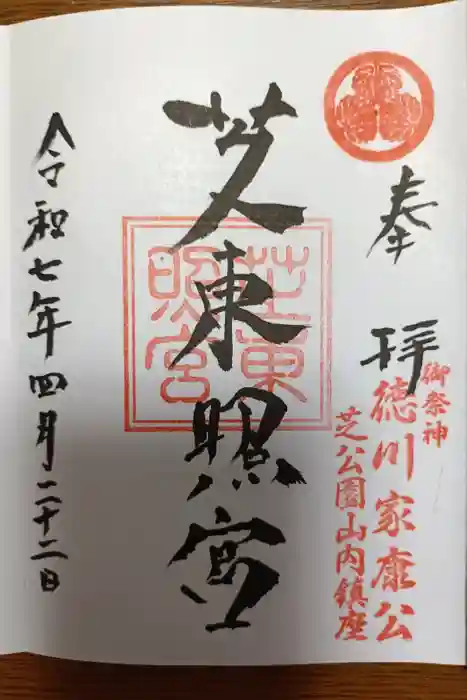 奉拝
御祭神
徳川家康公
芝公園山内鎮座
芝東照宮
芝東
照宮
令和七年四月二十二日